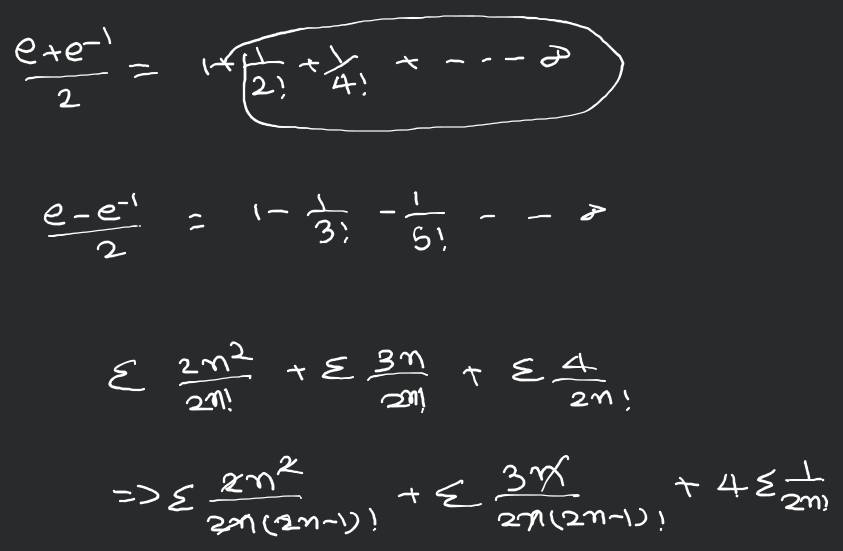 (e+e^-1)/2 = 1+1/2! + 1/4! + - - - - ∞
(e-e^-1)/2 = 1 - 1/3! - 1/5! - - ∞
Σ 2n^2/2n! + Σ 3n/2n! + Σ 4/2n!
=> Σ 2n^2/2n(2n-1)! + Σ 3n/2n(2n-1)! + 4Σ 1/2n!